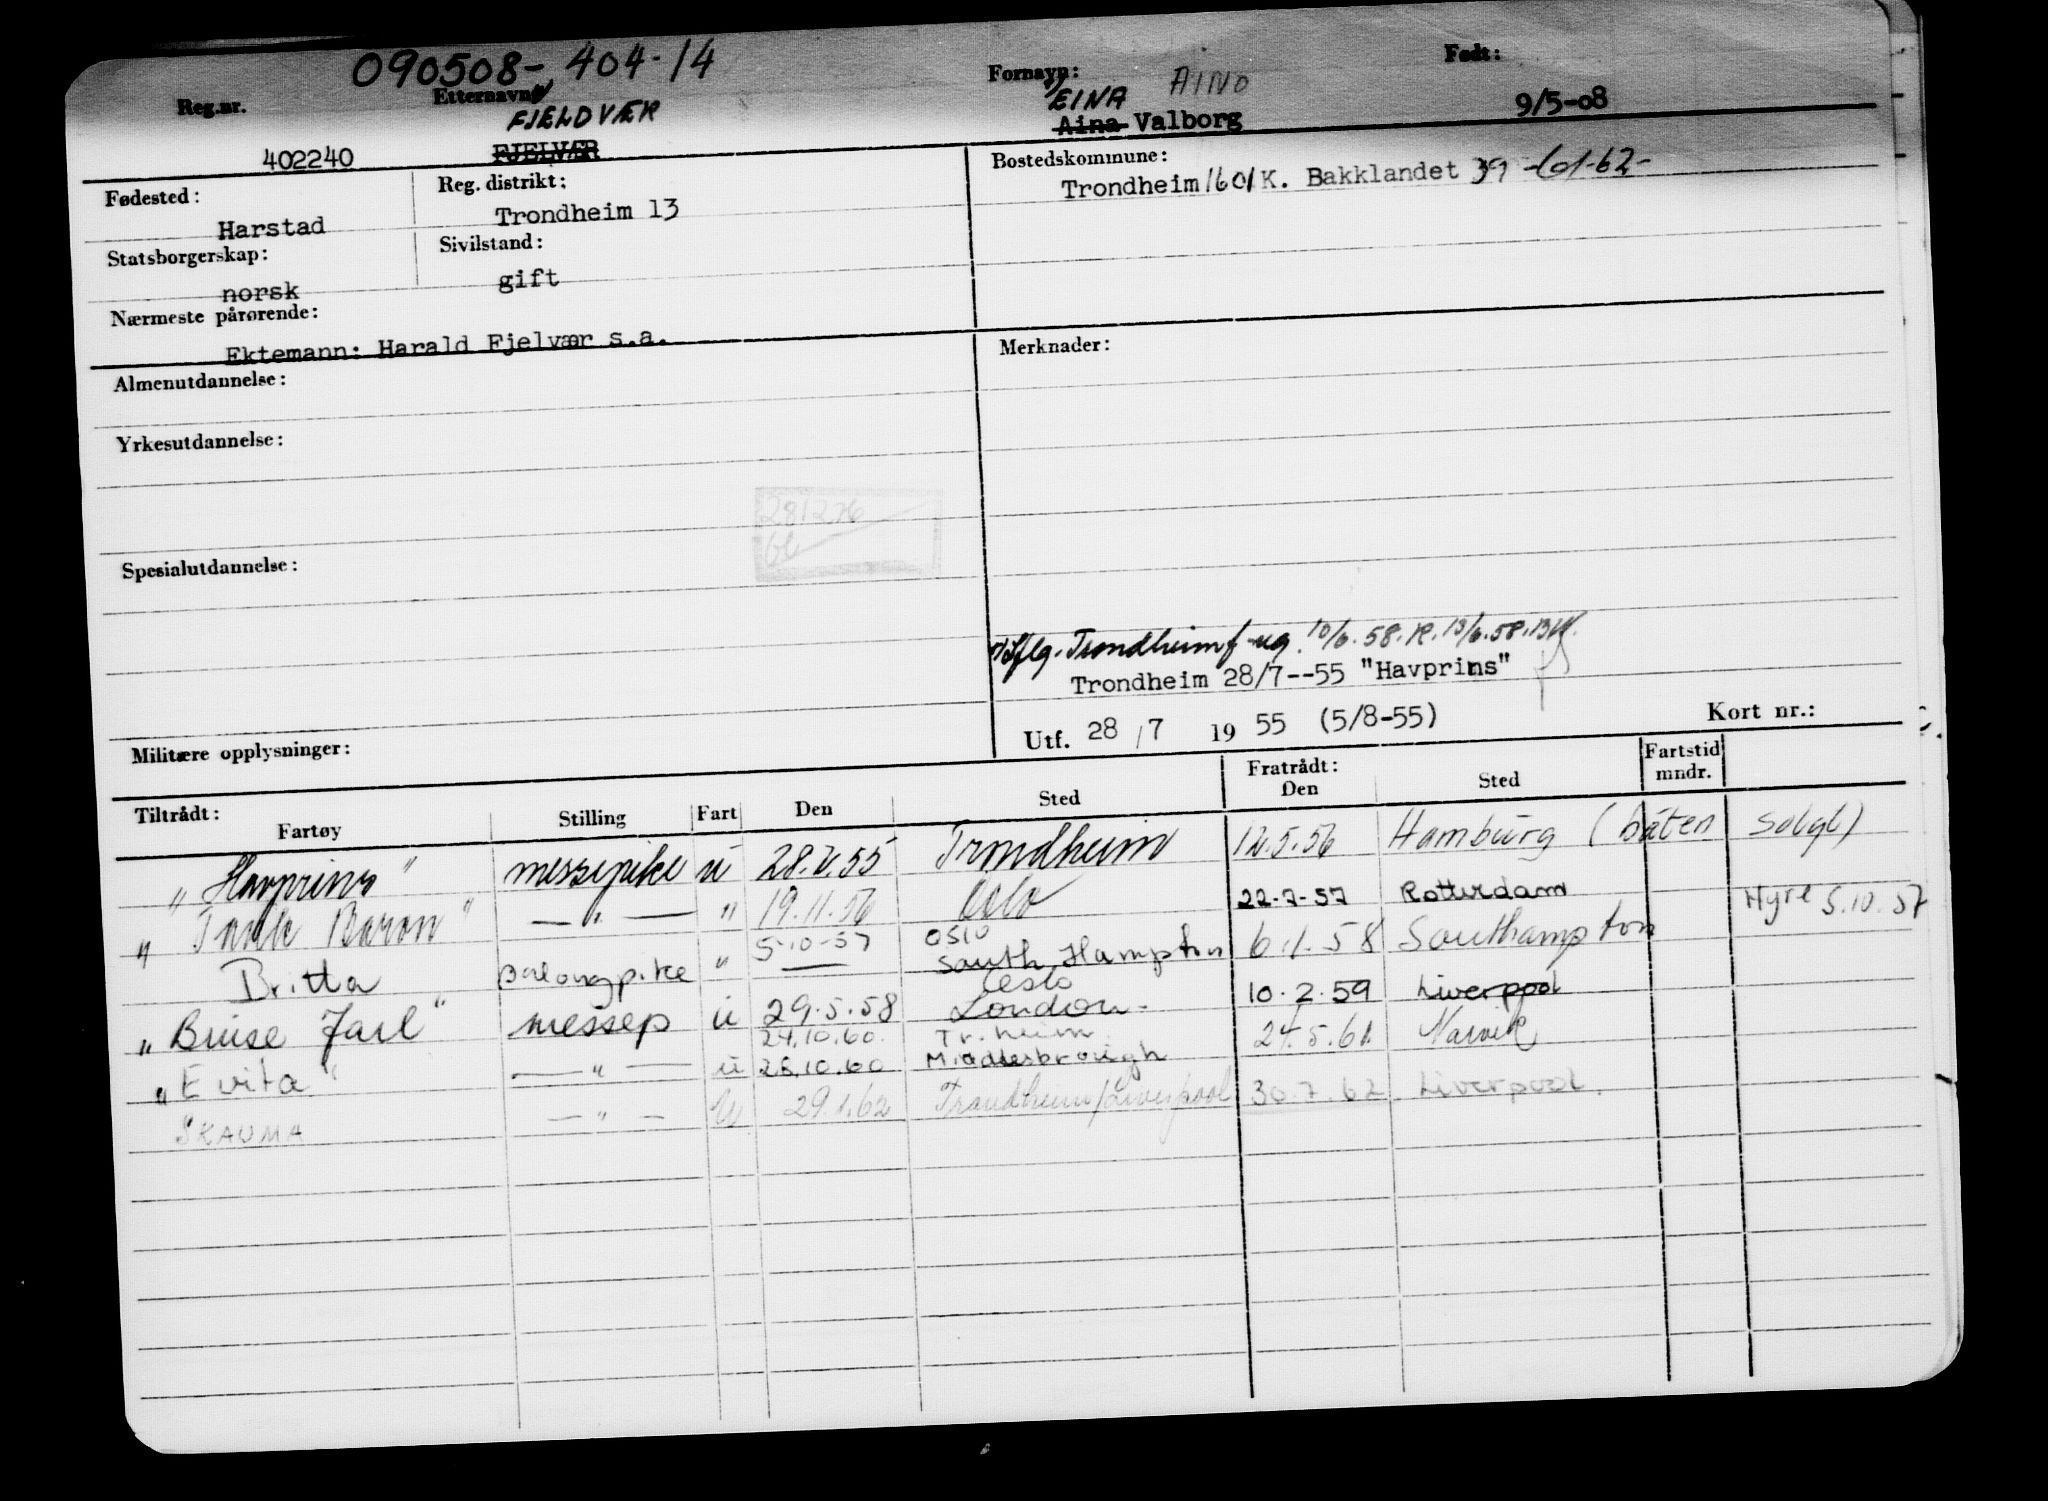 090508-404-14
Reg.nr. Etternavn: Fornavn: AINO Født:
FJELDVÆR EINA
402240 FJELVÆR Aina Valborg 9/5-08
Fødested: Reg. distrikt: Bostedskommune:
Harstad Trondheim 13 Trondheim 1601 K. Bakklandet 39 -01-62-
Statsborgerskap: Sivilstand:
norsk gift
Nærmeste pårørende:
Ektemann: Harald Fjelvær s.a.
Almenutdannelse: Merknader:
Yrkesutdannelse:
281276
Spesialutdannelse:
Trondheim 10/6.58. 13/6.58.
Trondheim 28/7--55 "Havprins"
Utf. 28/7 1955 (5/8-55) Kort nr.:
Militære opplysninger:
Tiltrådt: Fratrådt: Fartstid
Fartøy Stilling Fart Den Sted Den Sted mndr.
"Havprins" messepike u 28.7.55 Trondheim 12.5.56 Hamburg (båten solgt)
"Tank Baron" — " — " 19.11.56 Oslo 22-7-57 Rotterdam Hyre 5.10.57
5-10-57 Oslo
Britta " — South Hampton 6.1.58 Southampton
Oslo
"Bruse Jarl" messep u 29.5.58 London - 10.2.59 Liverpool
24.10.60. Tr.heim
"Evita" — " — u 26.10.60 Middlesbrough 24.5.61 Narvik
SKAUMA — " — u 29.1.62 Trondheim/Liverpool 30.7.62 Liverpool.